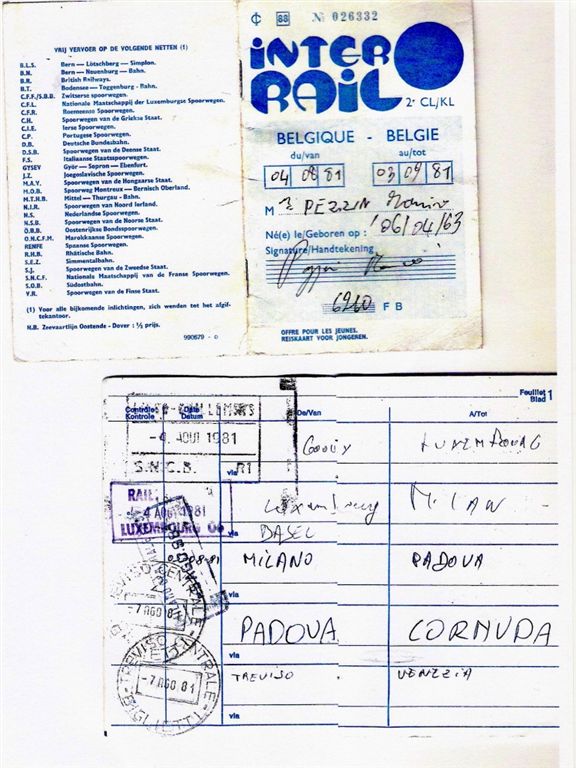 VRIJ VERVOER OP DE VOLGENDE NETTEN (1)
B.L.S. Bern — Lötschberg — Simplon.
B.N. Bern — Neuenburg — Bahn.
B.R. British Railways.
B.T. Bodensee — Toggenburg - Bahn.
C.F.F./S.B.B. Zwitserse spoorwegen.
C.F.L. Nationale Maatschappij der Luxemburgse Spoorwegen.
C.F.R. Roemeense Spoorwegen.
C.H. Spoorwegen van de Griekse Staat.
C.I.E. Ierse Spoorwegen.
C.P. Portugese Spoorwegen.
D.B. Deutsche Bundesbahn.
D.S.B. Spoorwegen van de Deense Staat.
F.S. Italiaanse Staatsspoorwegen.
GYSEV Györ — Sopron — Ebenfurt.
J.Z. Joegoslavische Spoorwegen.
M.A.V. Spoorwegen van de Hongaarse Staat.
M.O.B. Spoorweg Montreux — Bernisch Oberland.
M.T.H.B. Mittel — Thurgau - Bahn.
N.I.R. Spoorwegen van Noord Ierland.
N.S. Nederlandse Spoorwegen.
N.S.B. Spoorwegen van de Noorse Staat.
Ö.B.B. Oostenrijkse Bondsspoorwegen.
O.N.C.F.M. Marokkaanse Spoorwegen.
RENFE Spaanse Spoorwegen.
R.H.B. Rhätische Bahn.
S.E.Z. Simmentalbahn.
S.J. Spoorwegen van de Zweedse Staat.
S.N.C.F. Nationale Maatschappij van de Franse Spoorwegen.
S.O.B. Südostbahn.
V.R. Spoorwegen van de Finse Staat.
(1) Voor alle bijkomende inlichtingen, zich wenden tot het afgif-
tekantoor.
N.B. Zeevaartlijn Oostende - Dover : ½ prijs.
990679 - o
88 № 026332
INTER
RAIL
2e CL/KL
BELGIQUE - BELGIE
du/van au/tot
04 08 81 03 09 81
M PEZZIN
Né(e) le/Geboren op : 06/04/63
Signature/Handtekening
6210 F B
OFFRE POUR LES JEUNES.
REISKAART VOOR JONGEREN.
Feuillet 1
Blad
Contrôle Date De/Van A/Tot
Kontrole Datum
-4. AOUT 1981
S.N.C.B. R1
via
Gouy LUXEMBOURG
RAIL
-4 AOUT 1981
LUXEMBOURG
Luxembourg MILAN
via BASEL
MILANO PADOVA
via
PADOVA CORNUDA
via
TREVISO VENEZIA
via
TREVISO CENTRALE
-7 AGO 81
TREVISO CENTRALE
-7 AGO 81
BIGLIETTI